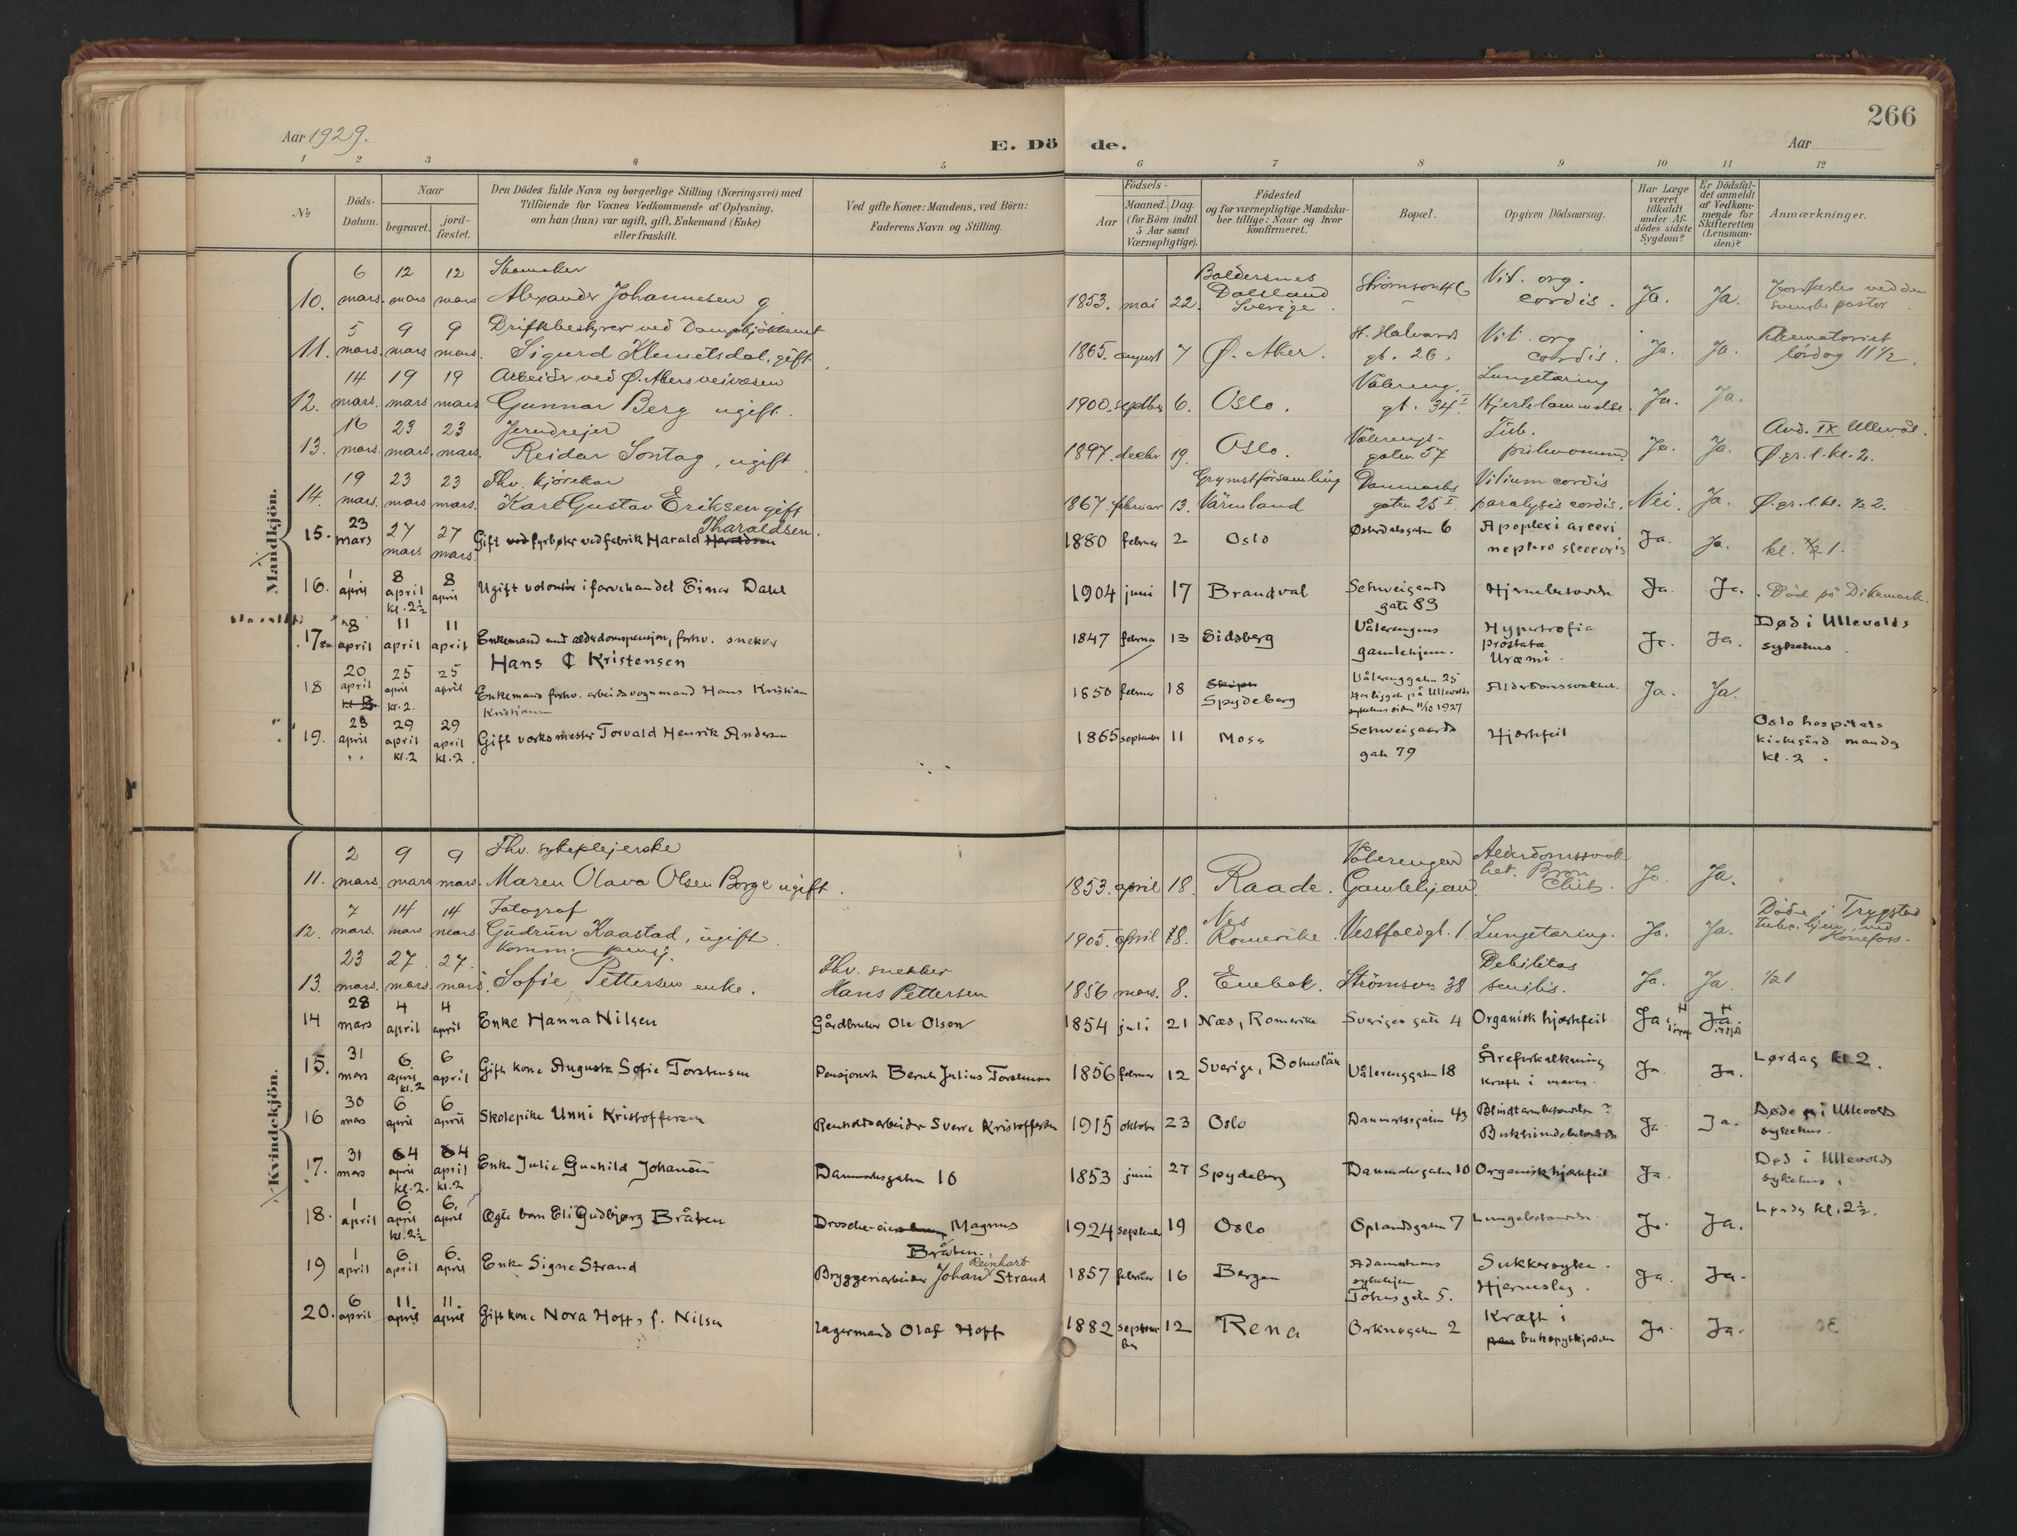 266
Aar 1929.
E. Dö de.
Aar
1 2 3 4 5 6 7 8 9 10 11 12
№
Döds-Datum.
Naar
begravet.
jord-fæstet.
Den Dödes fulde Navn og borgerlige Stilling (Næringsvei) med
Tilföiende for Voxnes Vedkommende af Oplysning,
om han (hun) var ugift, gift, Enkemand (Enke)
eller fraskilt.
Ved gifte Koner: Mandens, ved Börn:
Faderens Navn og Stilling.
Födsels-
Aar
Maaned. Dag.
(for Börn indtil
5 Aar samt
Værnepligtige).
Födested
og for værnepligtige Mandska-
ber tillige: Naar og hvor
konfirmeret.
Bopæl.
Opgiven Dödsaarsag.
Har Læge
været
tilkaldt
under Af-
dödes sidste
Sygdom?
Er Dödsfal-
det anmeldt
af Vedkom-
mende for
Skifteretten
(Lensman-
den)?
Anmærkninger.
Mandkjön.
10. 6 mars. 12 mars 12 mars Skomaker
Alexander Johannesen g 1853. mai 22. Baldersnes Dalsland Sverige. Strømsvn 46 Vit. org. cordis. Ja. Ja. Jordfæstes ved den svenske pastor
11. 5 mars. 9 mars 9 mars. Driftsbestyrer ved Dampkjøkkenet
Sigurd Klemetsdal, gift. 1865. august 7 Ø. Aker. St. Halvards gt. 26. Vit. org. cordis. Ja. Ja. Krematoriet lördag 11 1/2
12. 14 mars. 19 mars 19 mars Arbeider ved Ø. Akers veivæsen
Gunnar Berg ugift. 1900. septbr 6. Oslo. Vålereng. gt. 34 I. Lungetæring Hjertelammelse. Ja. Ja.
13. 16 mars. 23 mars. 23 mars. Jerndreier
Reidar Sontag, ugift 1897. decbr 19. Oslo. Vålerengs-gaten 57 Tub. pulmonum Ja. Ja. Avd. IX Ullevål. Ø.gr.l. kl. 2.
14. 19 mars. 23 mars 23 mars. Fhv. kjørekar
Karl Gustav Eriksen gift 1867. februar 13. Värmland Danmarks gaten 25 I Vitium cordis paralysis cordis. Nei. Ja. Ø.gr.l. kl. 1/2 2.
15. 23 mars 27 mars 27 mars. Gift fyrbøter ved fabrik Harald Tharaldsen. 1880 februar 2 Oslo Østerdalsgaten 6 Apoplexi arteri nephro sclerosis Ja. Ja. kl. 1/2 1.
16. 1 april 8 april kl. 2½ 8 april Ugift volontør i farvehandel Einar Dahl 1904 juni 17 Brandval Schweigaards gate 83 Hjernebetændelse Ja. Ja. Død på Dikemark.
17 8 april 11 april 11 april Enkemand med alderdomspensjon, forhv. snekker
Hans C Kristensen 1847 februar 13 Eidsberg Vålerengens gamlehjem. Hypertrofia prostatæ Uræmi. Ja. Ja. Død i Ullevolds sykehus
18 20 april 25 april kl. 2. 25 april Enkemand forhv. arbeidsvognmand Hans Kristian
Kristiansen 1850 februar 18 Spydeberg Vålerenggaten 25 Har ligget på Ullevolds sykehus siden 11/10 1927 Alderdomssvakhet. Ja. Ja.
19. 23 april 29 april kl. 2 29 april kl. 2. Gift verksmester Torvald Henrik Andersen 1865 september 11 Moss Schweigaards gate 79 Hjertefeil Oslo hospitals kirkegård mandag kl. 2.
Kvindekjön.
11. 2 mars. 9 mars 9 mars. Fhv. sykepleierske
Maren Olava Olsen Borge ugift. 1853. april 18. Raade. Vålerengen Gamlehjem Alderdomssvakhet. Bron chit. Ja. Ja.
12. 7 mars. 14 mars 14 mars Fotograf
Gudrun Kaastad, ugift. 1905. april 18. Nes Romerike. Vestfoldgt. 1. Lungetæring. Ja. Ja. Døde i Trygstad tub. hjem ved Kónefoss.
13. 23 mars. 27. mars. 27. mars. Komm. pensj.
Sofie Pettersen enke. Fhv. snekker Hans Pettersen 1856 mars. 8. Enebak. Strömsvn 38 Debilitas senilis. Ja. Ja. 1/2 1
14 28 mars 4 april 4 april Enke Hanna Nilsen Gårdbruker Ole Olson 1854 juli 21 Næs, Romerike Sverigesgate 4 Organisk hjertefeil Ja. Ja.
15. 31 mars 6. april kl. 2 6 april Gift kone Augusta Sofie Torstensen Pensjonist Bernt Julius Torstensen 1856 februar 12 Sverige, Bohuslän Vålerenggaten 18 Åreforkalkning Kræft i maven. Ja Ja. Lørdag kl. 2.
16 30 mars 6 april 6 april Skolepike Unni Kristoffersen Renholdsarbeider Sverre Kristoffersen 1915 oktober 23 Oslo Danmarksgaten 43 Blindtarmbetændelse? Bukhindebetændelse Ja. Ja. Døde i Ullevolds sykehus.
17. 31 mars 4 april kl. 2. 4 april kl. 2 Enke Julie Gunhild Johansen Danmarksgaten 10 1853 juni 27 Spydeberg Danmarksgaten 10 Organisk hjertefeil Ja. Død i Ullevolds sykehus.
18. 1 april 6 april kl. 2½ 6. april. Ægte barn Eli Gudbjørg Bråten Droscheeier Magnus Bråten. 1924 september 19 Oslo Oplandsgaten 7 Lungebetændelse. Ja. Ja. Lørdag kl. 2½.
19 1 april 6 april 6. april. Enke Signe Strand Bryggeriarbeider Johan Reinhart Strand 1857 februar 16 Bergen Adamstuens sykehjem Tøhusgate 5. Sukkersyke. Hjerneslag. Ja. Ja.
20. 6 april 11. april 11. april Gift kone Nora Hoff, f. Nilsen Lagermand Olaf Hoff 1882 september 12 Rena Orknøgaten 2 Kræft i bukspytkjertelen Ja. Ja.